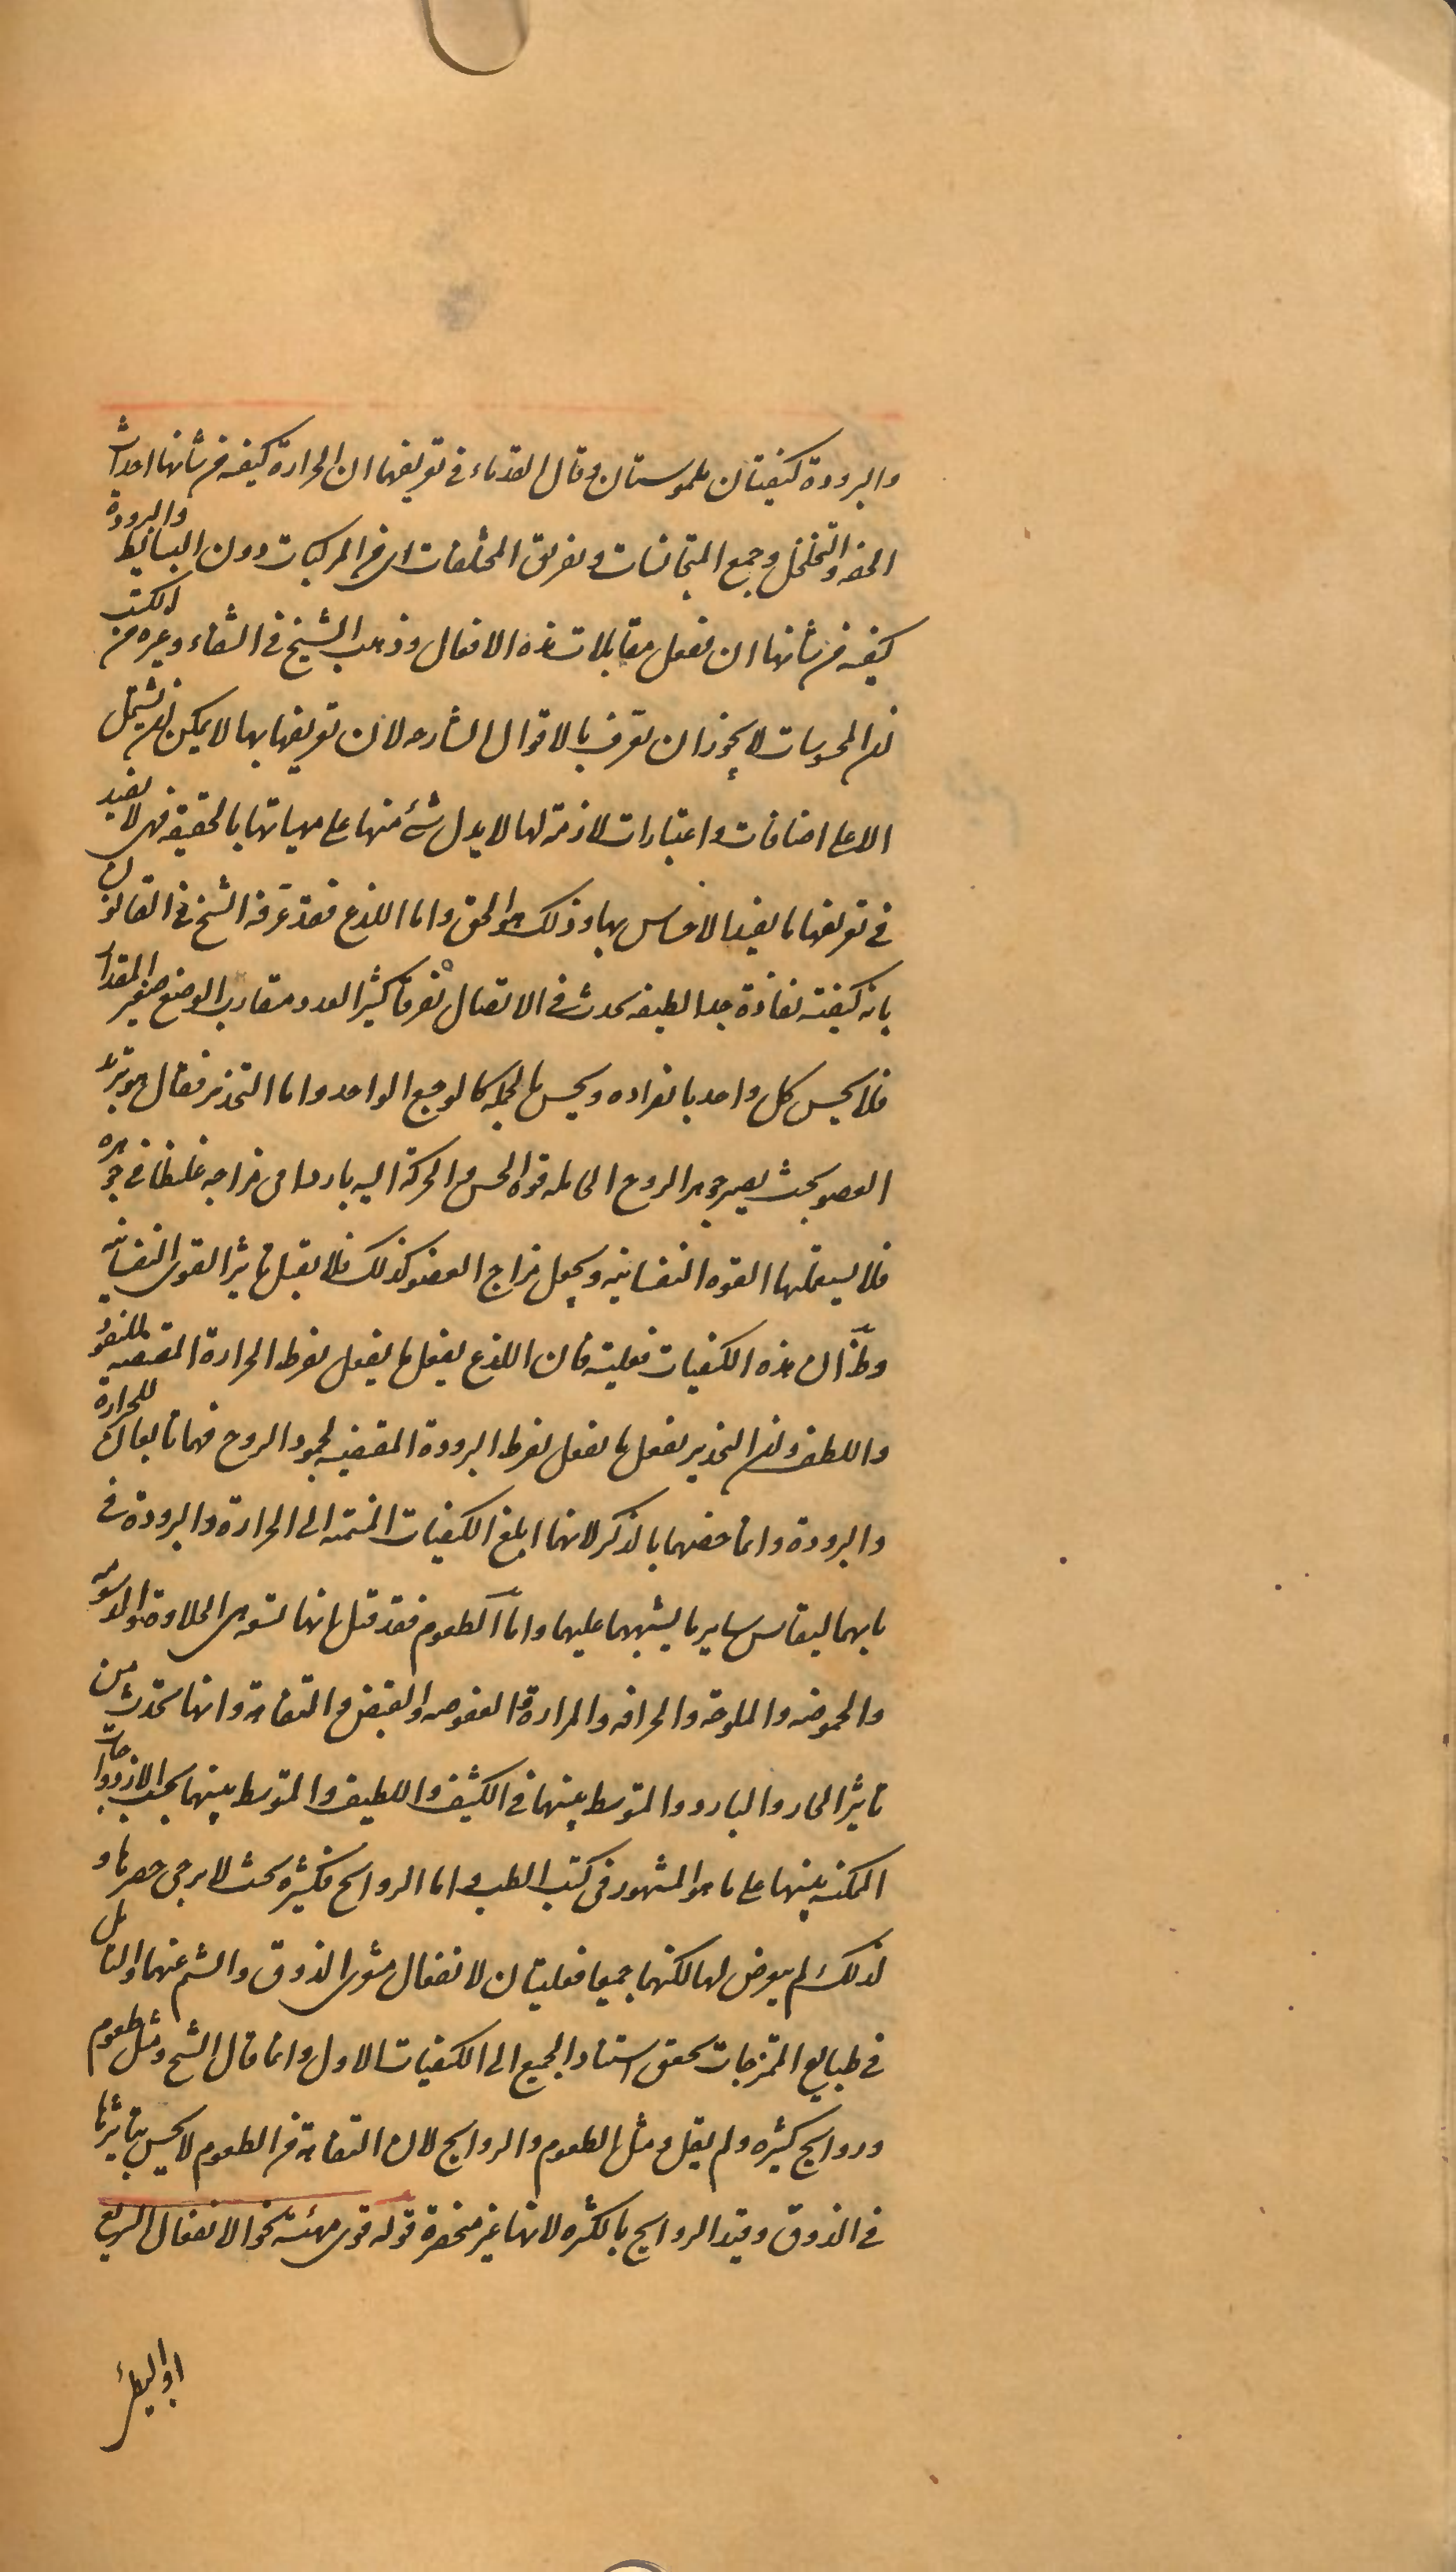 والبرودة كيفيتان ملموستان وقال القدماء في تعريفهما ان الحرارة كيفية من شانها احداث
الخفة والتخلخل وجمع المتجانسات وتفريق المختلفات اي في المركبات دون البسائط والبرودة
كيفية من شانها ان تفعل مقابلات هذه الافعال وذهب الشيخ في الشفاء وغيره من الكتب
ان المحسوسات لا يجوز ان تعرف بالاقوال الشارحة لان تعريفها بها لا يمكن ان يشتمل
الا على اضافات واعتبارات لازمة لها لا يدل شئ منها على مهياتها بالحقيقة فهي لا يفيد
في تعريفها ما يفيد الاحساس بها وذلك هو الحق واما اللذع فقد عرفه الشيخ في القانون
بانه كيفية نفاذة جدا لطيفة يحدث في الاتصال تفرقا كثير العدد متقارب الوضع صغير المقدار
فلا يحس كل واحد بانفراده ويحس بالجملة كالوجع الواحد واما التخدير فقال هو تبريد
العضو بحيث يصير جوهر الروح الحاملة قوة الحس والحركة اليه باردا في مزاجه غليظا في جوهره
فلا يستعملها القوة النفسانية ويجعل مزاج العضو كذلك فلا يقبل تاثير القوى النفسانية
وظ ان هذه الكيفيات فعلية فان اللذع يفعل ما يفعل بفرط الحرارة المقتضية للنفوذ
واللطف وان التخدير يفعل ما يفعل بفرط البرودة المقتضية لجمود الروح فهما تابعان للحرارة
والبرودة وانما خصهما بالذكر لانهما ابلغ الكيفيات المنتمية الى الحرارة والبرودة في
بابهما ليقاس ساير ما يشبههما عليهما واما الطعوم فقد قيل انها تسعة هي الحلاوة والدسومة
والحموضة والملوحة والحرافة والمرارة والعفوصة والقبض والتفاهة وانها تحدث من
تاثير الحار والبارد والمتوسط بينهما في الكثيف واللطيف والمتوسط بينهما بحسب الازدواجات
الممكنة بينها على ما هو المشهور في كتب الطب واما الروايح فكثيرة بحيث لا يرجى حصرها و
لذلك لم يعرض لها لكنهما جميعا فعليتان لانفعال مشعري الذوق والشم عنهما والتامل
في طبايع الممتزجات يحقق استناد الجميع الى الكيفيات الاول وانما قال الشيخ ومثل طعوم
وروايح كثيرة ولم يقل ومثل الطعوم والروايح لان التفاهة من الطعوم لا يحس بتاثيرها
في الذوق وقيد الروايح بالكثرة لانها غير منحصرة قوله قوى مهيئة نحو الانفعال السريع
او البطئ